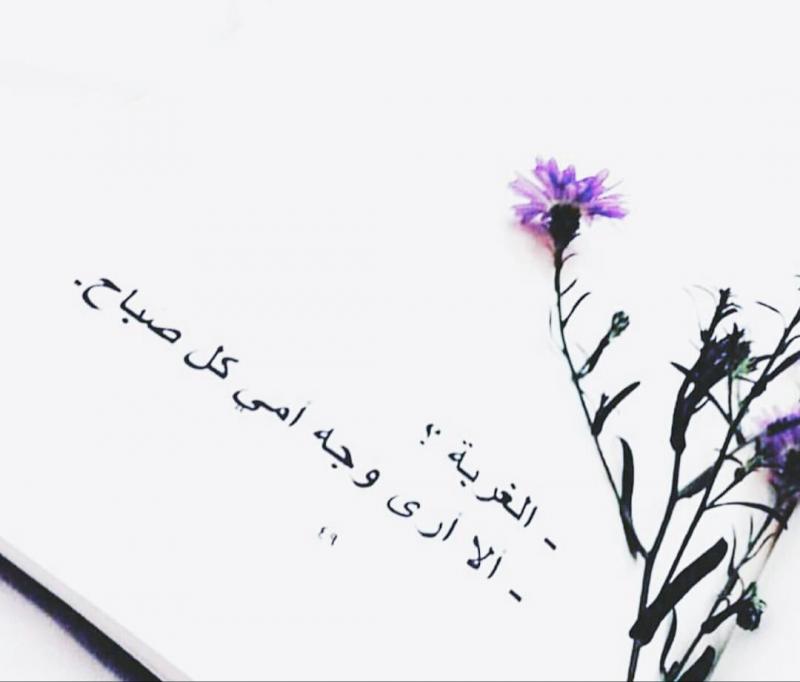 - الغربة ؟
- ألا أرى وجه أمي كل صباح.
٤٩